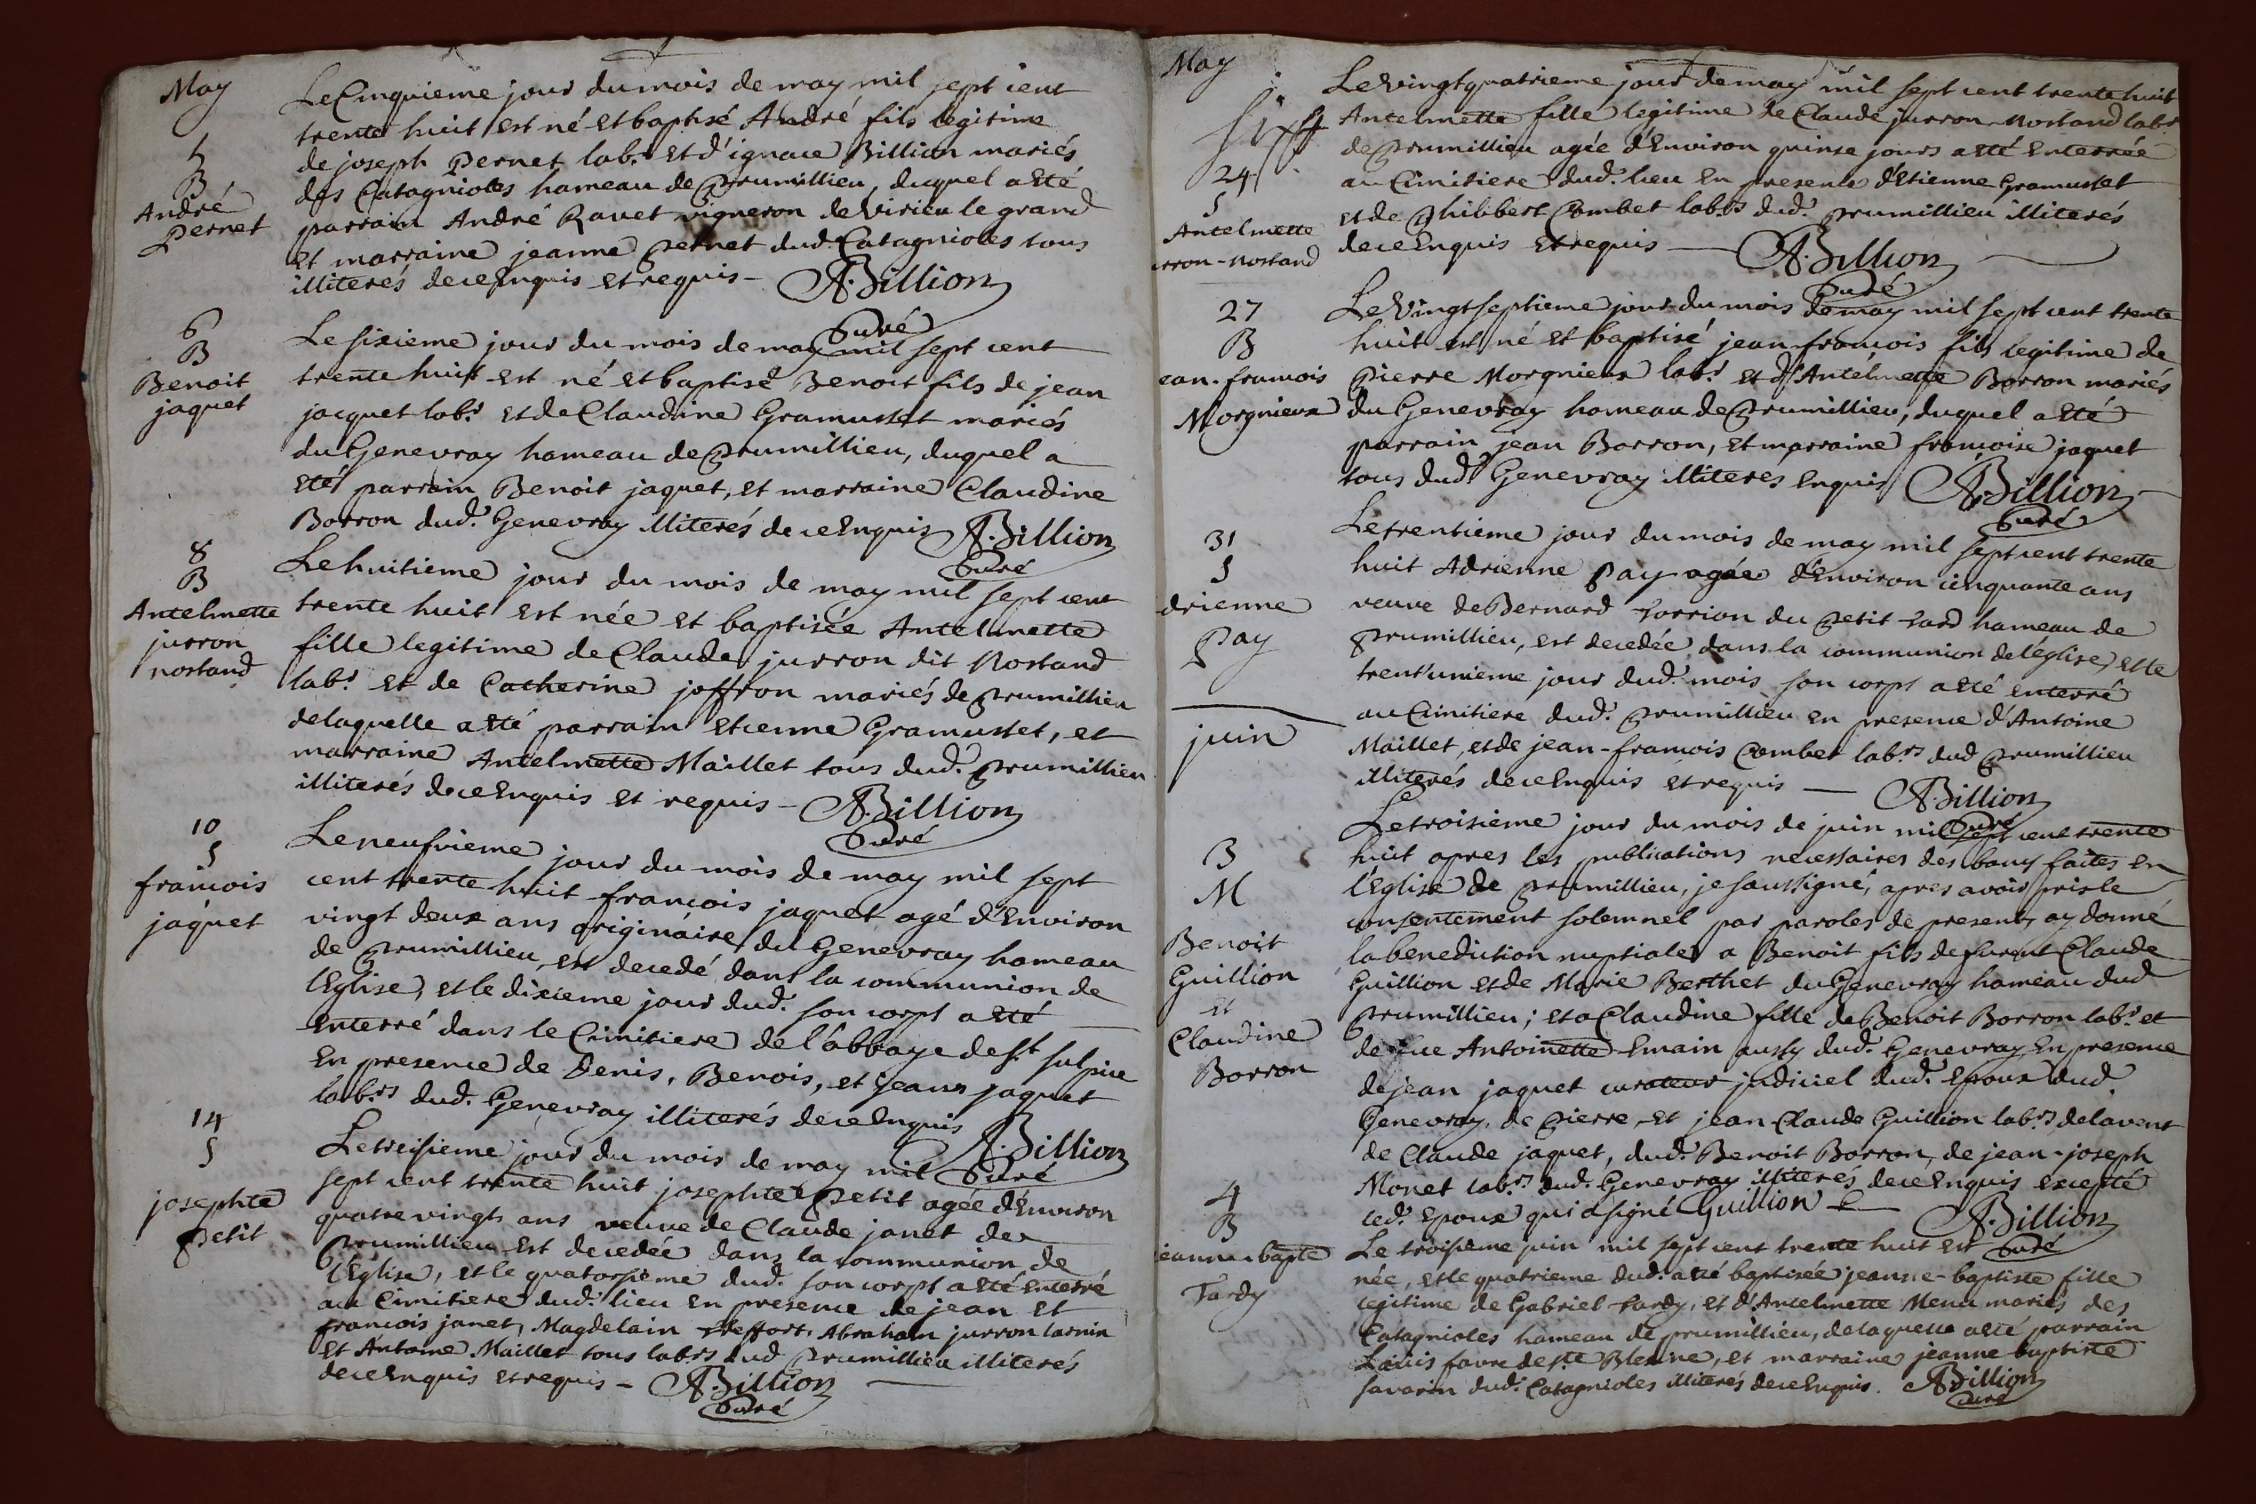 May
Le Cinquieme jour du mois de may mil sept cent
trente huit est né et baptisé André fils legitime
5
de joseph Pernet lab.r et d'ignace Billion mariés
B
des Catagnioles hameau de Prumillieu, duquel a eté
André
parrain André Ravet vigneron de Virieu le grand
Pernet
et marraine jeanne Pernet dud. Catagnioles tous
illiterés de ce enquis et requis - A. Billion
Curé
6
Le sixieme jour du mois de may mil sept cent
B
trente huit est né et baptisé Benoit fils de jean
Benoit
jaquet
jacquet lab.r et de Claudine Gramusset mariés
du Genevray hameau de Prumillieu, duquel a
eté parrain Benoit jaquet, et marraine Claudine
Borron dud. Genevray illiterés de ce enquis A. Billion
Curé
8
Le huitieme jour du mois de may mil sept cent
B
trente huit est née et baptisée Antelmette
Antelmette
fille legitime de Claude jurron dit Nostand
jurron
nostand
lab.r et de Catherine joffron mariés de Prumillieu
de laquelle a eté parrain etienne Gramusset, et
marraine Antelmette Maillet tous dud. Prumillieu
illiterés de ce enquis et requis - A. Billion
Curé
10
Le neufvieme jour du mois de may mil sept
S
cent trente huit francois jaquet agé d'Environ
francois
vingt deux ans originaire du Genevray hameau
jaquet
de Prumillieu, est decedé dans la communion de
l'Eglise, et le dixieme jour dud. son corps a eté
enterré dans le Cimitiere de l'abbaye de s.t sulpice
En presence de Denis, Benois, et jean jaquet
lab.rs dud. Genevray illiterés de ce enquis
A. Billion
Curé
14
Le treisieme jour du mois de may mil
S
sept cent trente huit josephte Petit agée d'Environ
josephte
quatre vingts ans veuve de Claude janet de
Petit
Prumillieu est decedée dans la communion de
l'Eglise, et le quatorsieme dud. son corps a eté enterré
au Cimitiere dud. lieu en presence de jean et
francois janet, Magdelain Treffort, Abraham jurron tarnin
et Antoine Maillet tous lab.rs dud Prumillieu illiterés
de ce enquis et requis - A. Billion
Curé
May
Le vingt quatrieme jour de may mil sept cent trente huit
Antelmette fille legitime de Claude jurron-Nostand lab.r
de Prumillieu agée d'Environ quinse jours a eté Enterrée
24
au Cimitiere dud. lieu en presence d'Etienne Gramusset
S
Antelmette
et de Philibert Combet lab.rs dud. Prumillieu illiterés
rron-nostand
de ce Enquis et requis — A. Billion
Curé
27
Le Vingt septieme jour du mois de may mil sept cent trente
B
huit est né et baptisé jean-francois fils legitime de
ean-francois
Pierre Morgnieux lab.r et d'Antelmette Borron mariés
Morgnieux
du Genevray hameau de Prumillieu, duquel a eté
parrain jean Borron, et marraine francoise jaquet
tous dud. Genevray illiteres enquis A. Billion
Curé
31
Le trentieme jour du mois de may mil sept cent trente
S
huit Adrienne Pay agée d'Environ cinquante ans
drienne
veuve de Bernard torrion du Petit hameau de
Pay
Prumillieu, est decedée dans la communion de l'église, et le
trent'unieme jour dud. mois son corps a eté enterré
au Cimitiere dud. Prumillieu en presence d'Antoine
juin
Maillet, et de jean-francois Combet lab.rs dud Prumillieu
illiterés de ce Enquis et requis — A. Billion
Curé
3
Le troisieme jour du mois de juin mil sept cent trente
M
huit apres les publications necessaires des bans faites en
l'Eglise de Prumillieu, je soussigné, apres avoir pris le
consentement solemnel par paroles de present, ay donné
Benoit
la benediction nuptiale a Benoit fils de furent Claude
Guillion
Guillion et de Marie Berthet du Genevray hameau dud
et
Prumillieu; et a Claudine fille de Benoit Borron lab.r et
Claudine
de fue Antoinette Emain aussy dud. Genevray En presence
Borron
de jean jaquet curateur judiciel dud. Epoux dud
Genevray, de Pierre, et jean Claude Guillion lab.rs de lavent
de Claude jaquet, dud. Benoit Borron, de jean-joseph
Monet lab.rs dud. Genevray illiterés de ce enquis excepté
led. Epoux qui a signé Guillion A. Billion
Curé
4
B
Le troisieme juin mil sept cent trente huit est
jeanne bapte
née, et le quatrieme dud. a eté baptisée jeanne-baptiste fille
Tardy
legitime de Gabriel tardy, et d'Antelmette Menu mariés des
Catagnioles hameau de prumillieu, de laquelle a eté parrain
Louis favre de s.te Blesine, et marraine jeanne baptiste
savarin dud. Catagnioles illiterés de ce enquis. A. Billion
Curé